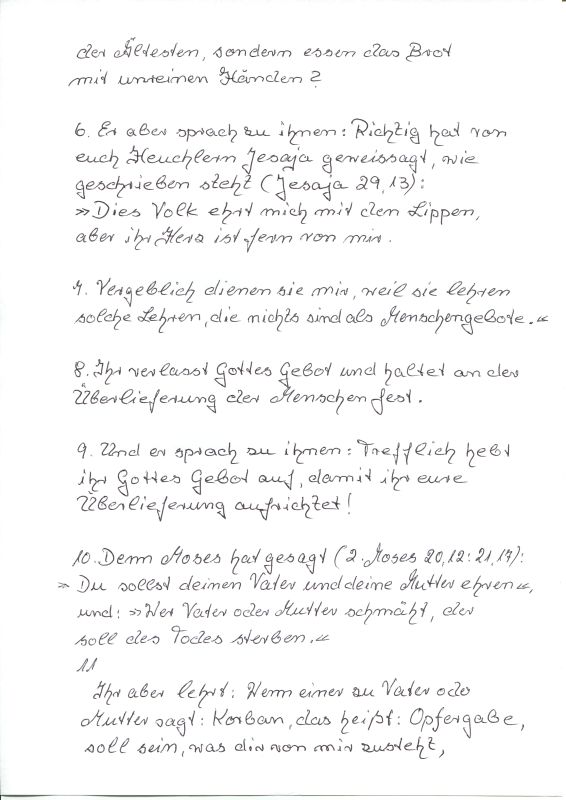 der Ältesten, sondern essen das Brot
mit unreinen Händen?
6. Er aber sprach zu ihnen: Richtig hat von
euch Heuchlern Jesaja geweissagt, wie
geschrieben steht (Jesaja 29,13):
»Dies Volk ehrt mich mit den Lippen,
aber ihr Herz ist fern von mir.
7. Vergeblich dienen sie mir, weil sie lehren
solche Lehren, die nichts sind als Menschengebote.«
8. Ihr verlasst Gottes Gebot und haltet an der
Überlieferung der Menschen fest.
9. Und er sprach zu ihnen: Trefflich hebt
ihr Gottes Gebot auf, damit ihr eure
Überlieferung aufrichtet!
10. Denn Moses hat gesagt (2. Moses 20,12: 21,17):
»Du sollst deinen Vater und deine Mutter ehren«,
und: »Wer Vater oder Mutter schmäht, der
soll des Todes sterben.«
11
Ihr aber lehrt: Wenn einer zu Vater oder
Mutter sagt: Korban, das heißt: Opfergabe,
soll sein, was dir von mir zusteht,